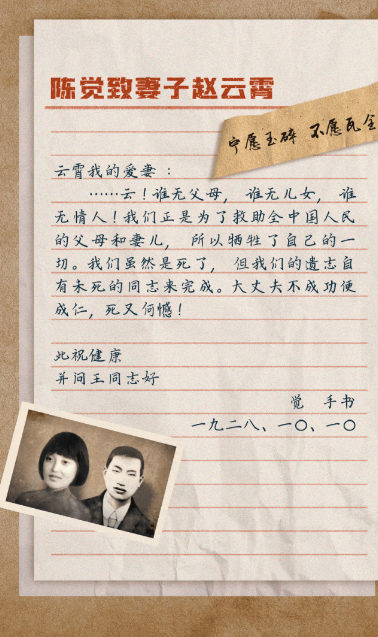 陈觉致妻子赵云霄
宁愿玉碎 不愿瓦全
云霄我的爱妻：
……云！谁无父母，谁无儿女，谁
无情人！我们正是为了救助全中国人民
的父母和妻儿，所以牺牲了自己的一
切。我们虽然是死了，但我们的遗志自
有未死的同志来完成。大丈夫不成功便
成仁，死又何憾！
此祝健康
并问王同志好
觉 手书
一九二八、一〇、一〇